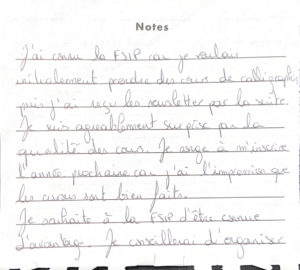 Notes
J'ai connu la FSIP car je voulais
initialement prendre des cours de calligraphie
puis j'ai reçu les newsletter par la suite.
Je suis agréablement surprise par la
qualité des cours. Je songe à m'inscrire
l'année prochaine car j'ai l'impression que
les cursus sont bien faits.
Je souhaite à la FSIP d'être connue
davantage. Je conseillerai d'organiser